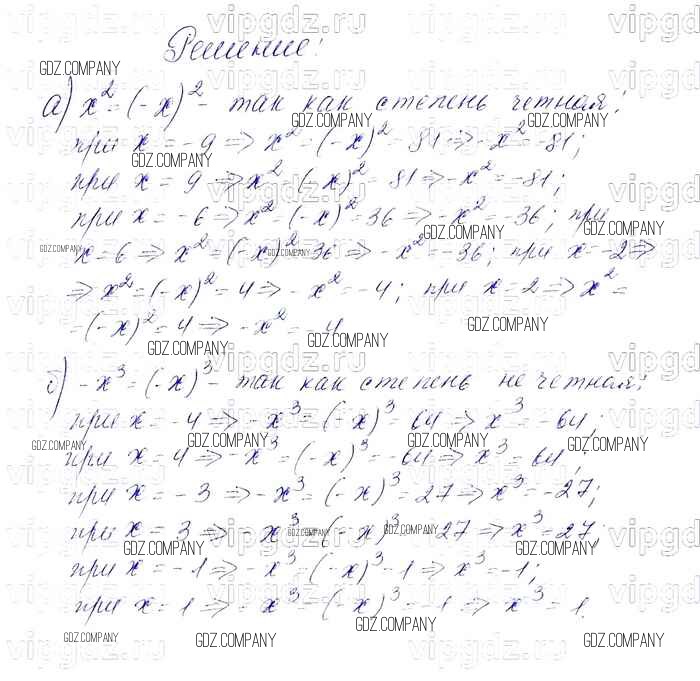 Решение:
а) x² = (-x)² - так как степень четная;
при x = -9 => x² = (-x)² = 81 => -x² = -81;
при x = 9 => x² = (-x)² = 81 => -x² = -81;
при x = -6 => x² = (-x)² = 36 => -x² = -36; при
x = 6 => x² = (-x)² = 36 => -x² = -36; при x = -2 =>
=> x² = (-x)² = 4 => -x² = -4; при x = 2 => x² =
= (-x)² = 4 => -x² = -4
б) -x³ = (-x)³ - так как степень не четная;
при x = -4 => -x³ = (-x)³ = 64 => x³ = -64;
при x = 4 => -x³ = (-x)³ = -64 => x³ = 64;
при x = -3 => -x³ = (-x)³ = 27 => x³ = -27;
при x = 3 => -x³ = (-x)³ = -27 => x³ = 27;
при x = -1 => -x³ = (-x)³ = 1 => x³ = -1;
при x = 1 => -x³ = (-x)³ = -1 => x³ = 1.